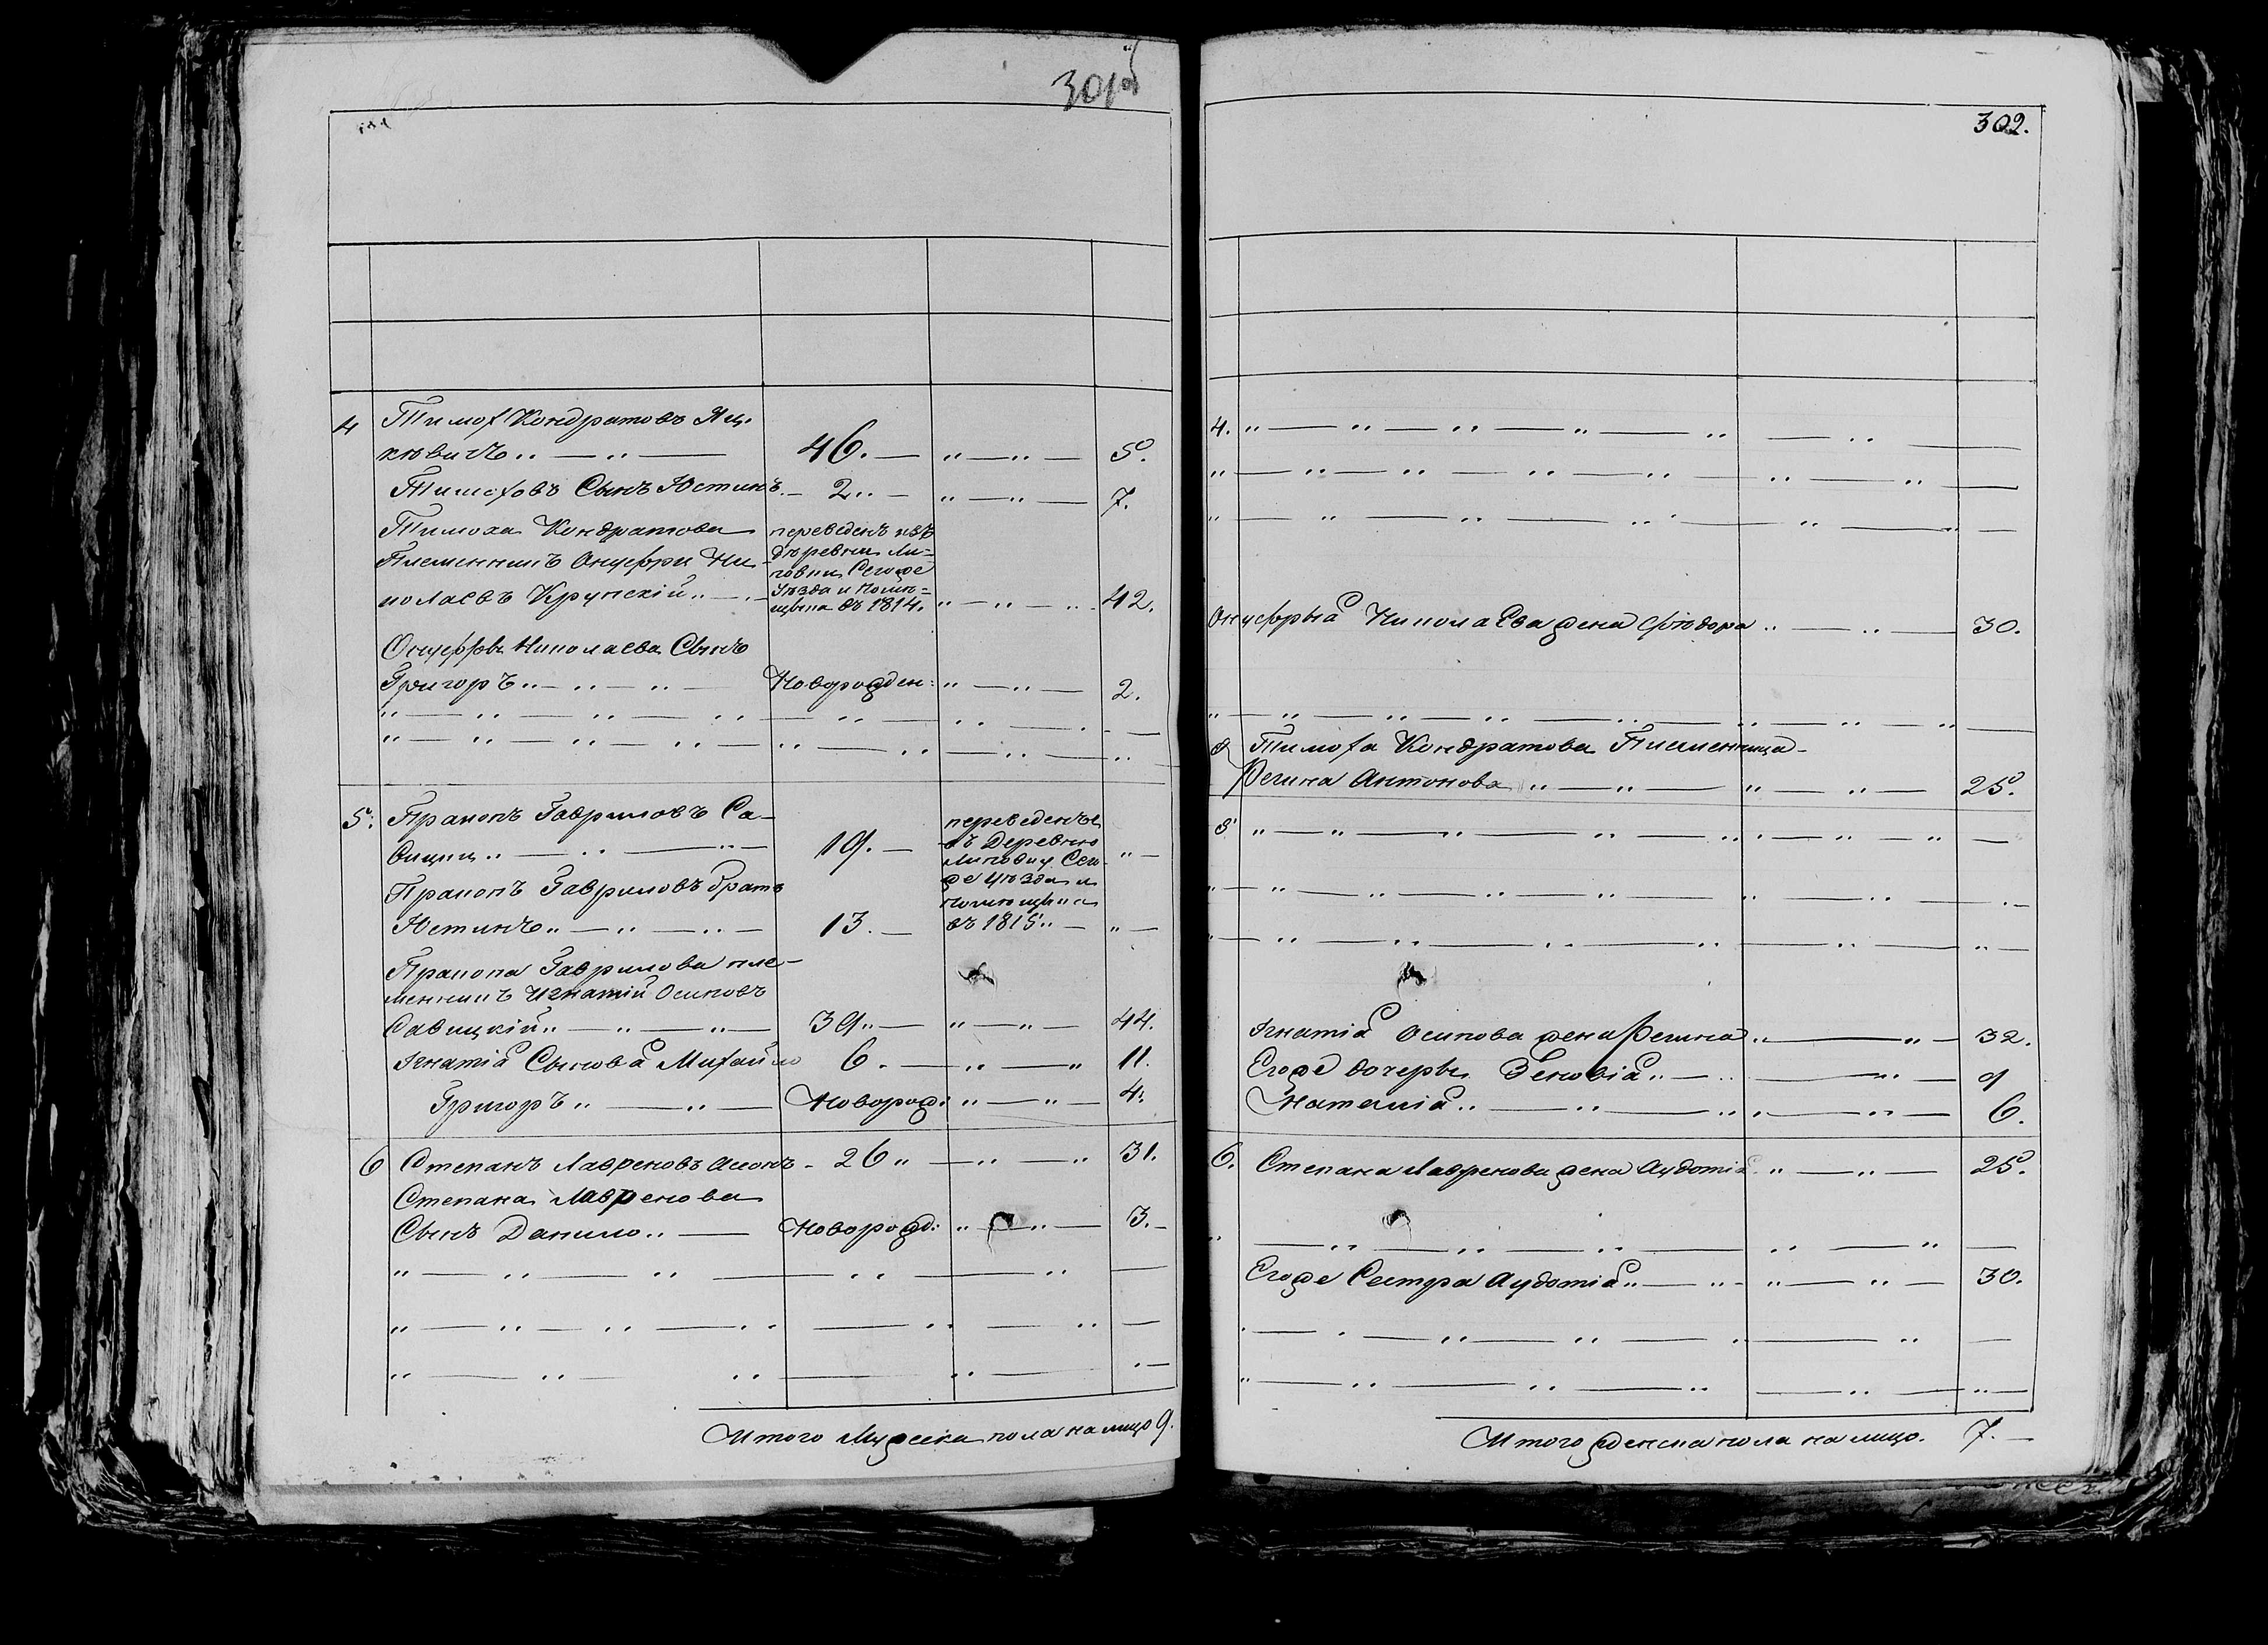 302.
4 Тимох Кондратовъ Яц-
кевичъ „ — „ — 46. — „ — „ — 5.
Тимоховъ Сынъ Юстинъ. — 2 „ — „ — „ — 7.
Тимоха Кондратова
Племенникъ Онуфри Ни-
колаевъ Крупскій „ —
переведенъ изъ
деревни Ли-
повки Сегоже
Уѣзда и Помѣ-
щика въ 1814. „ — „ — „ 42.
Онуфрія Николаева Сынъ
Григоръ „ — „ — „ — Новорожден: „ — „ — 2.
5. Пракопъ Гавриловъ Са-
вицки „ — „ — „ — 19. —
переведенъ
въ Деревню
Липовку Сего-
же Уѣзда и
Помѣщика
въ 1815 „ — „ —
Пракопъ Гавриловъ братъ
Юстинъ „ — „ — „ — 13. — „ —
Пракопа Гаврилова пле-
менникъ Игнатій Осиповъ
Савицкій „ — „ — „ — 39 „ — „ — „ — 44.
Ігнатія Сыновя Михайло 6. — „ — „ 11.
Григоръ „ — „ — Новорож: „ — „ — 4.
6 Степанъ Лавреновъ — 26 „ — „ — „ 31.
Степана Лавренова
Сынъ Данило „ — Новорожд: „ — „ — 3. —
Итого Мужеска пола на лицо 9.
4. „ — „ — „ — „ — „ — „ —
Онуфрыя Николаева жена Фіодора „ — „ — 30.
Тимоха Кондратова Племенница —
Регина Антонова „ — „ — „ — „ — 25.
5 „ — „ — „ — „ — „ — „ — „ —
Ігнатія Осипова жена Регина „ — „ — 32.
Егоже дочеры Зеновія „ — „ — „ — 9
Наталія „ — „ — „ — „ — 6.
6. Степана Лавренова жена Аудотія „ — „ — 25.
Егоже Сестра Аудотія „ — „ — „ — „ — 30.
Итого женска пола на лицо. 7. —